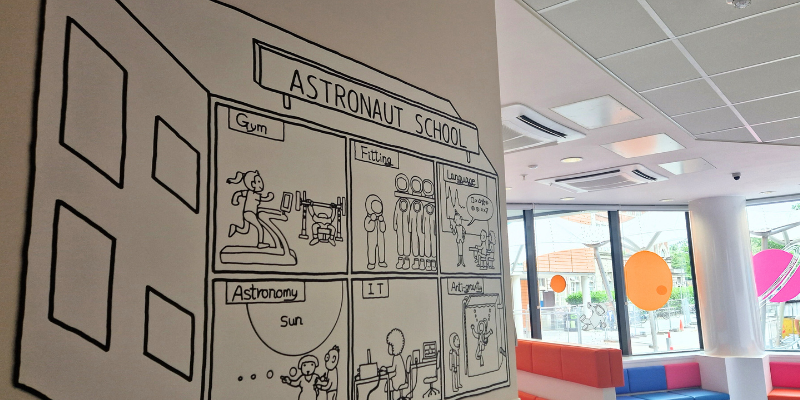 ASTRONAUT SCHOOL
Gym
Fitting
Language
Astronomy
Sun
IT
Anti-gravity